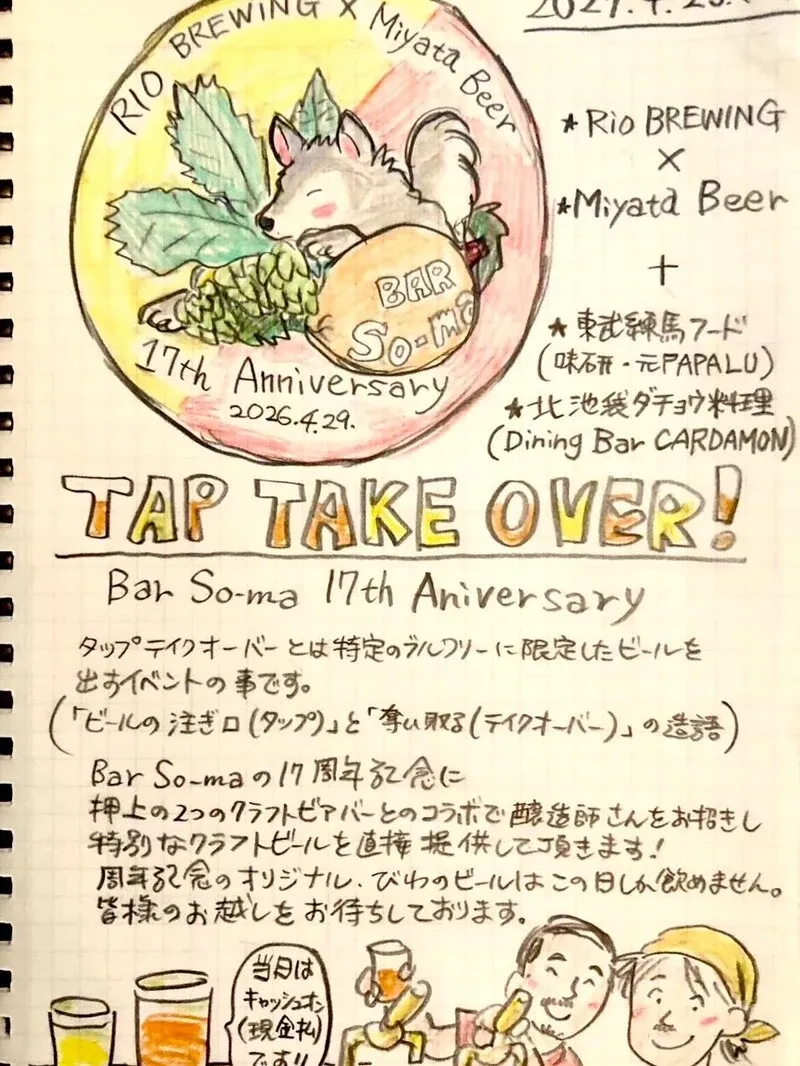 RIO BREWING × Miyata Beer
BAR
So-ma
17th Anniversary
2026.4.29.
★ Rio BREWING
×
★Miyata Beer
+
★ 東武練馬フード
(味研・元PAPALU)
★ 北池袋ダチョウ料理
(Dining Bar CARDAMON)
TAP TAKE OVER!
Bar So-ma 17th Aniversary
タップテイクオーバーとは特定のブルワリーに限定したビールを
出すイベントの事です。
(「ビールの注ぎ口(タップ)」と「奪い取る(テイクオーバー)」の造語)
Bar So-maの17周年記念に
押上の2つのクラフトビアバーとのコラボで醸造師さんをお招きし
特別なクラフトビールを直接提供して頂きます!
周年記念のオリジナル、びわのビールはこの日しか飲めません。
皆様のお越しをお待ちしております。
当日は
キャッシュオン
(現金払)
です!!